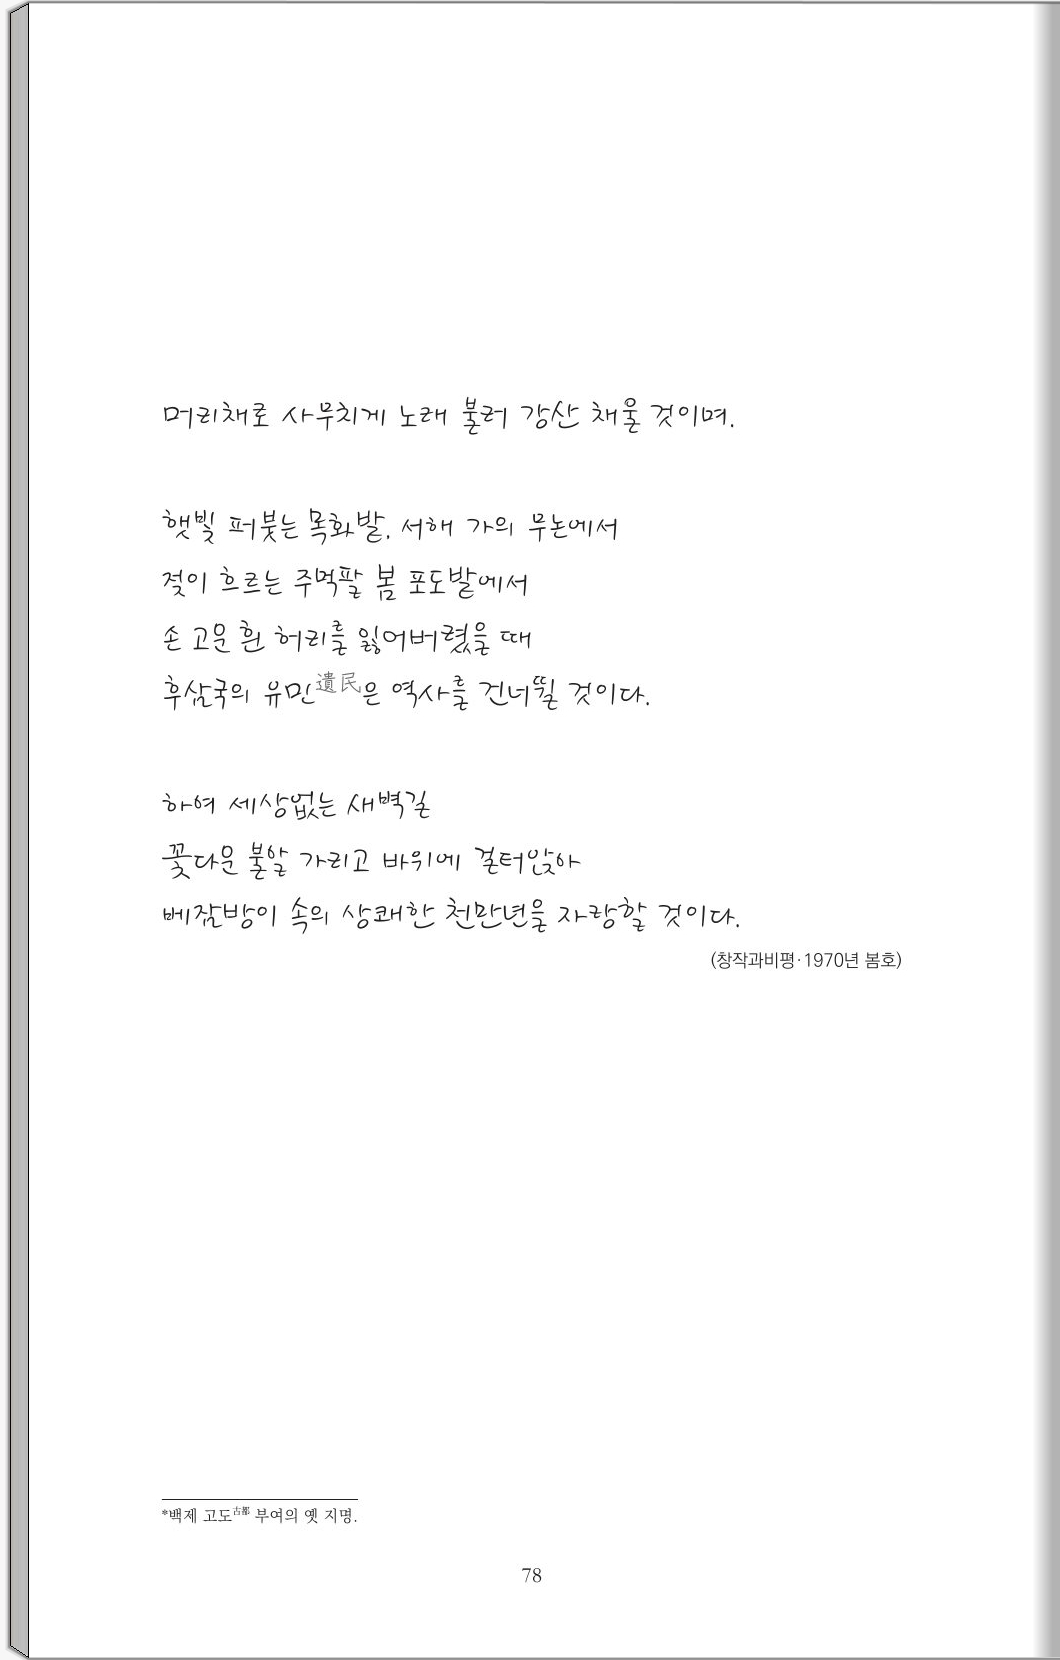 머리채로 사무치게 노래 불러 강산 채울 것이며.
햇빛 퍼붓는 목화밭, 서해 가의 무논에서
젖이 흐르는 주먹팔 봄 포도밭에서
손 고운 흰 허리를 잃어버렸을 때
후삼국의 유민遺民은 역사를 건너뛸 것이다.
하여 세상없는 새벽길
꽃다운 불알 가리고 바위에 걸터앉아
베잠방이 속의 상쾌한 천만년을 자랑할 것이다.
(창작과비평·1970년 봄호)
*백제 고도古都 부여의 옛 지명.
78